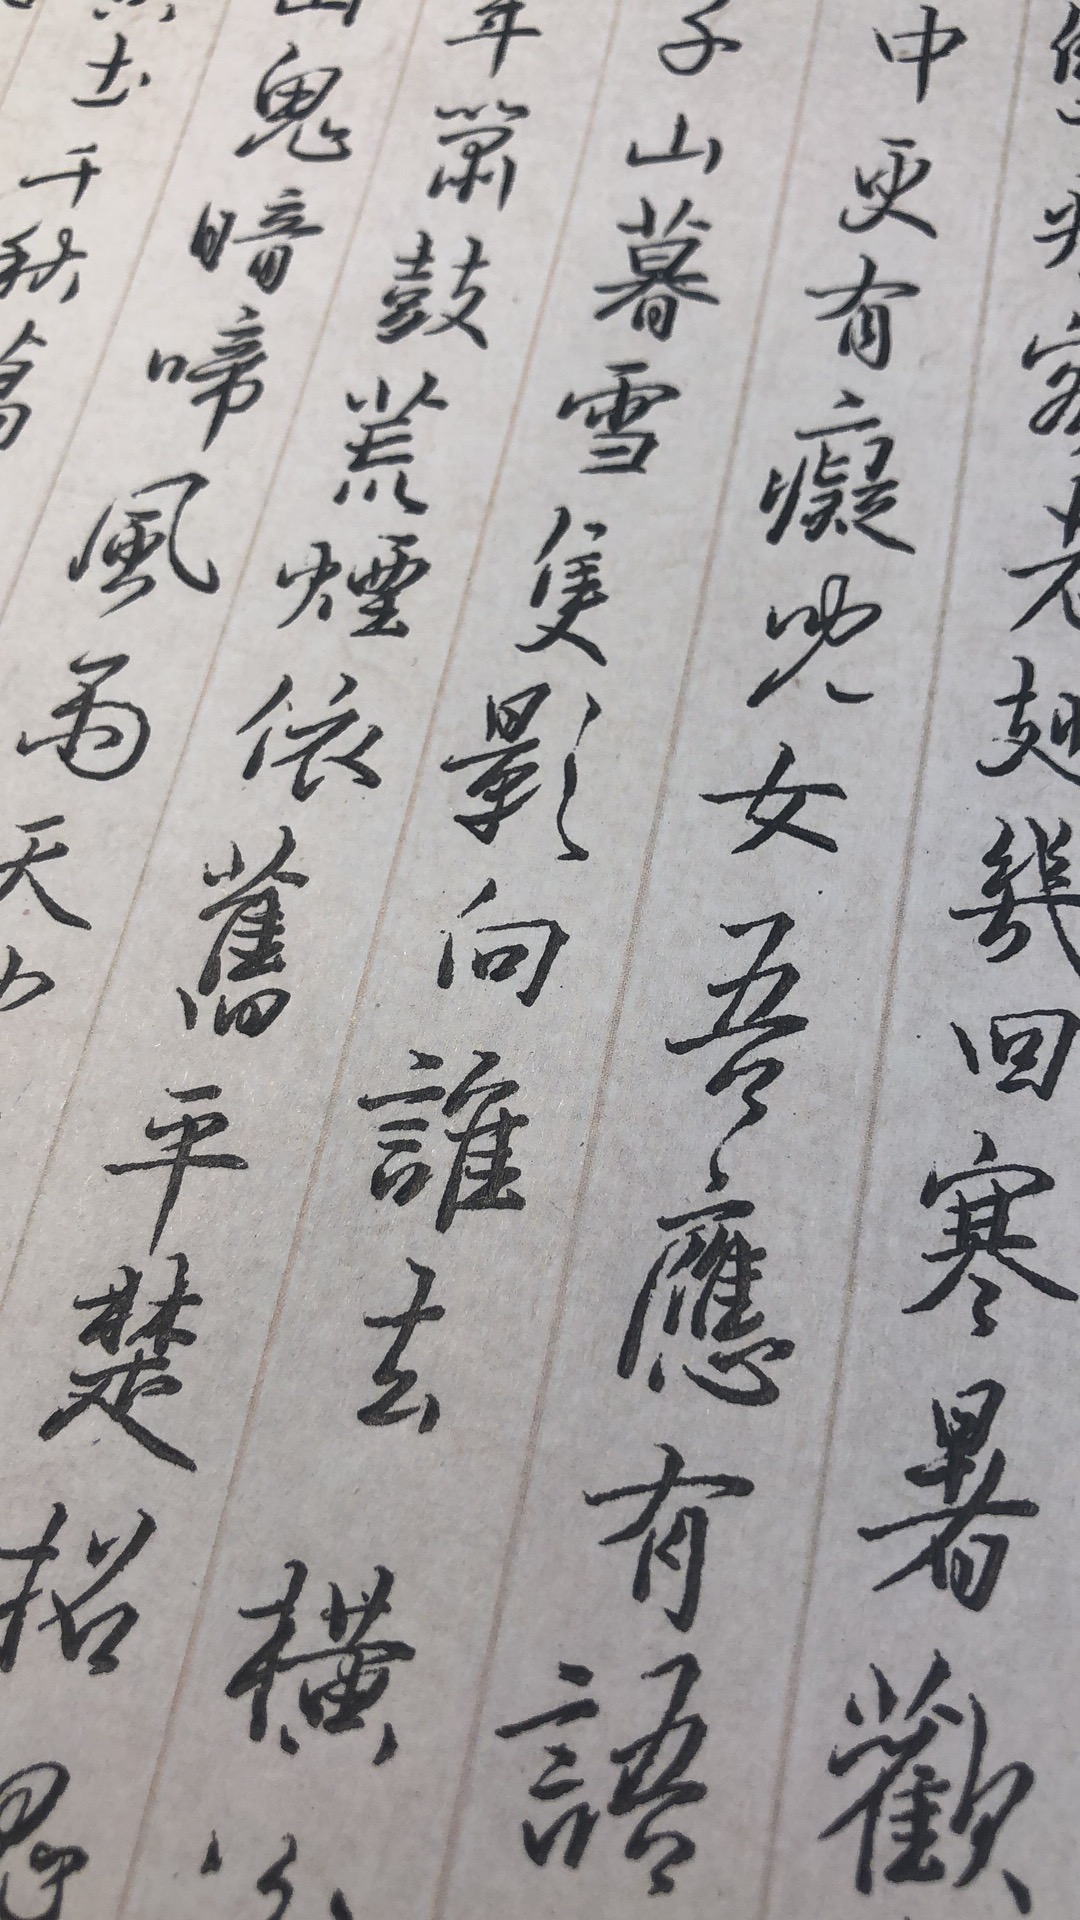 客老翅幾回寒暑歡
中更有癡兒女吾應有語
子山暮雪隻影向誰去 橫汾
年簫鼓荒煙依舊平楚招魂
山鬼暗啼風雨天也
土千秋萬